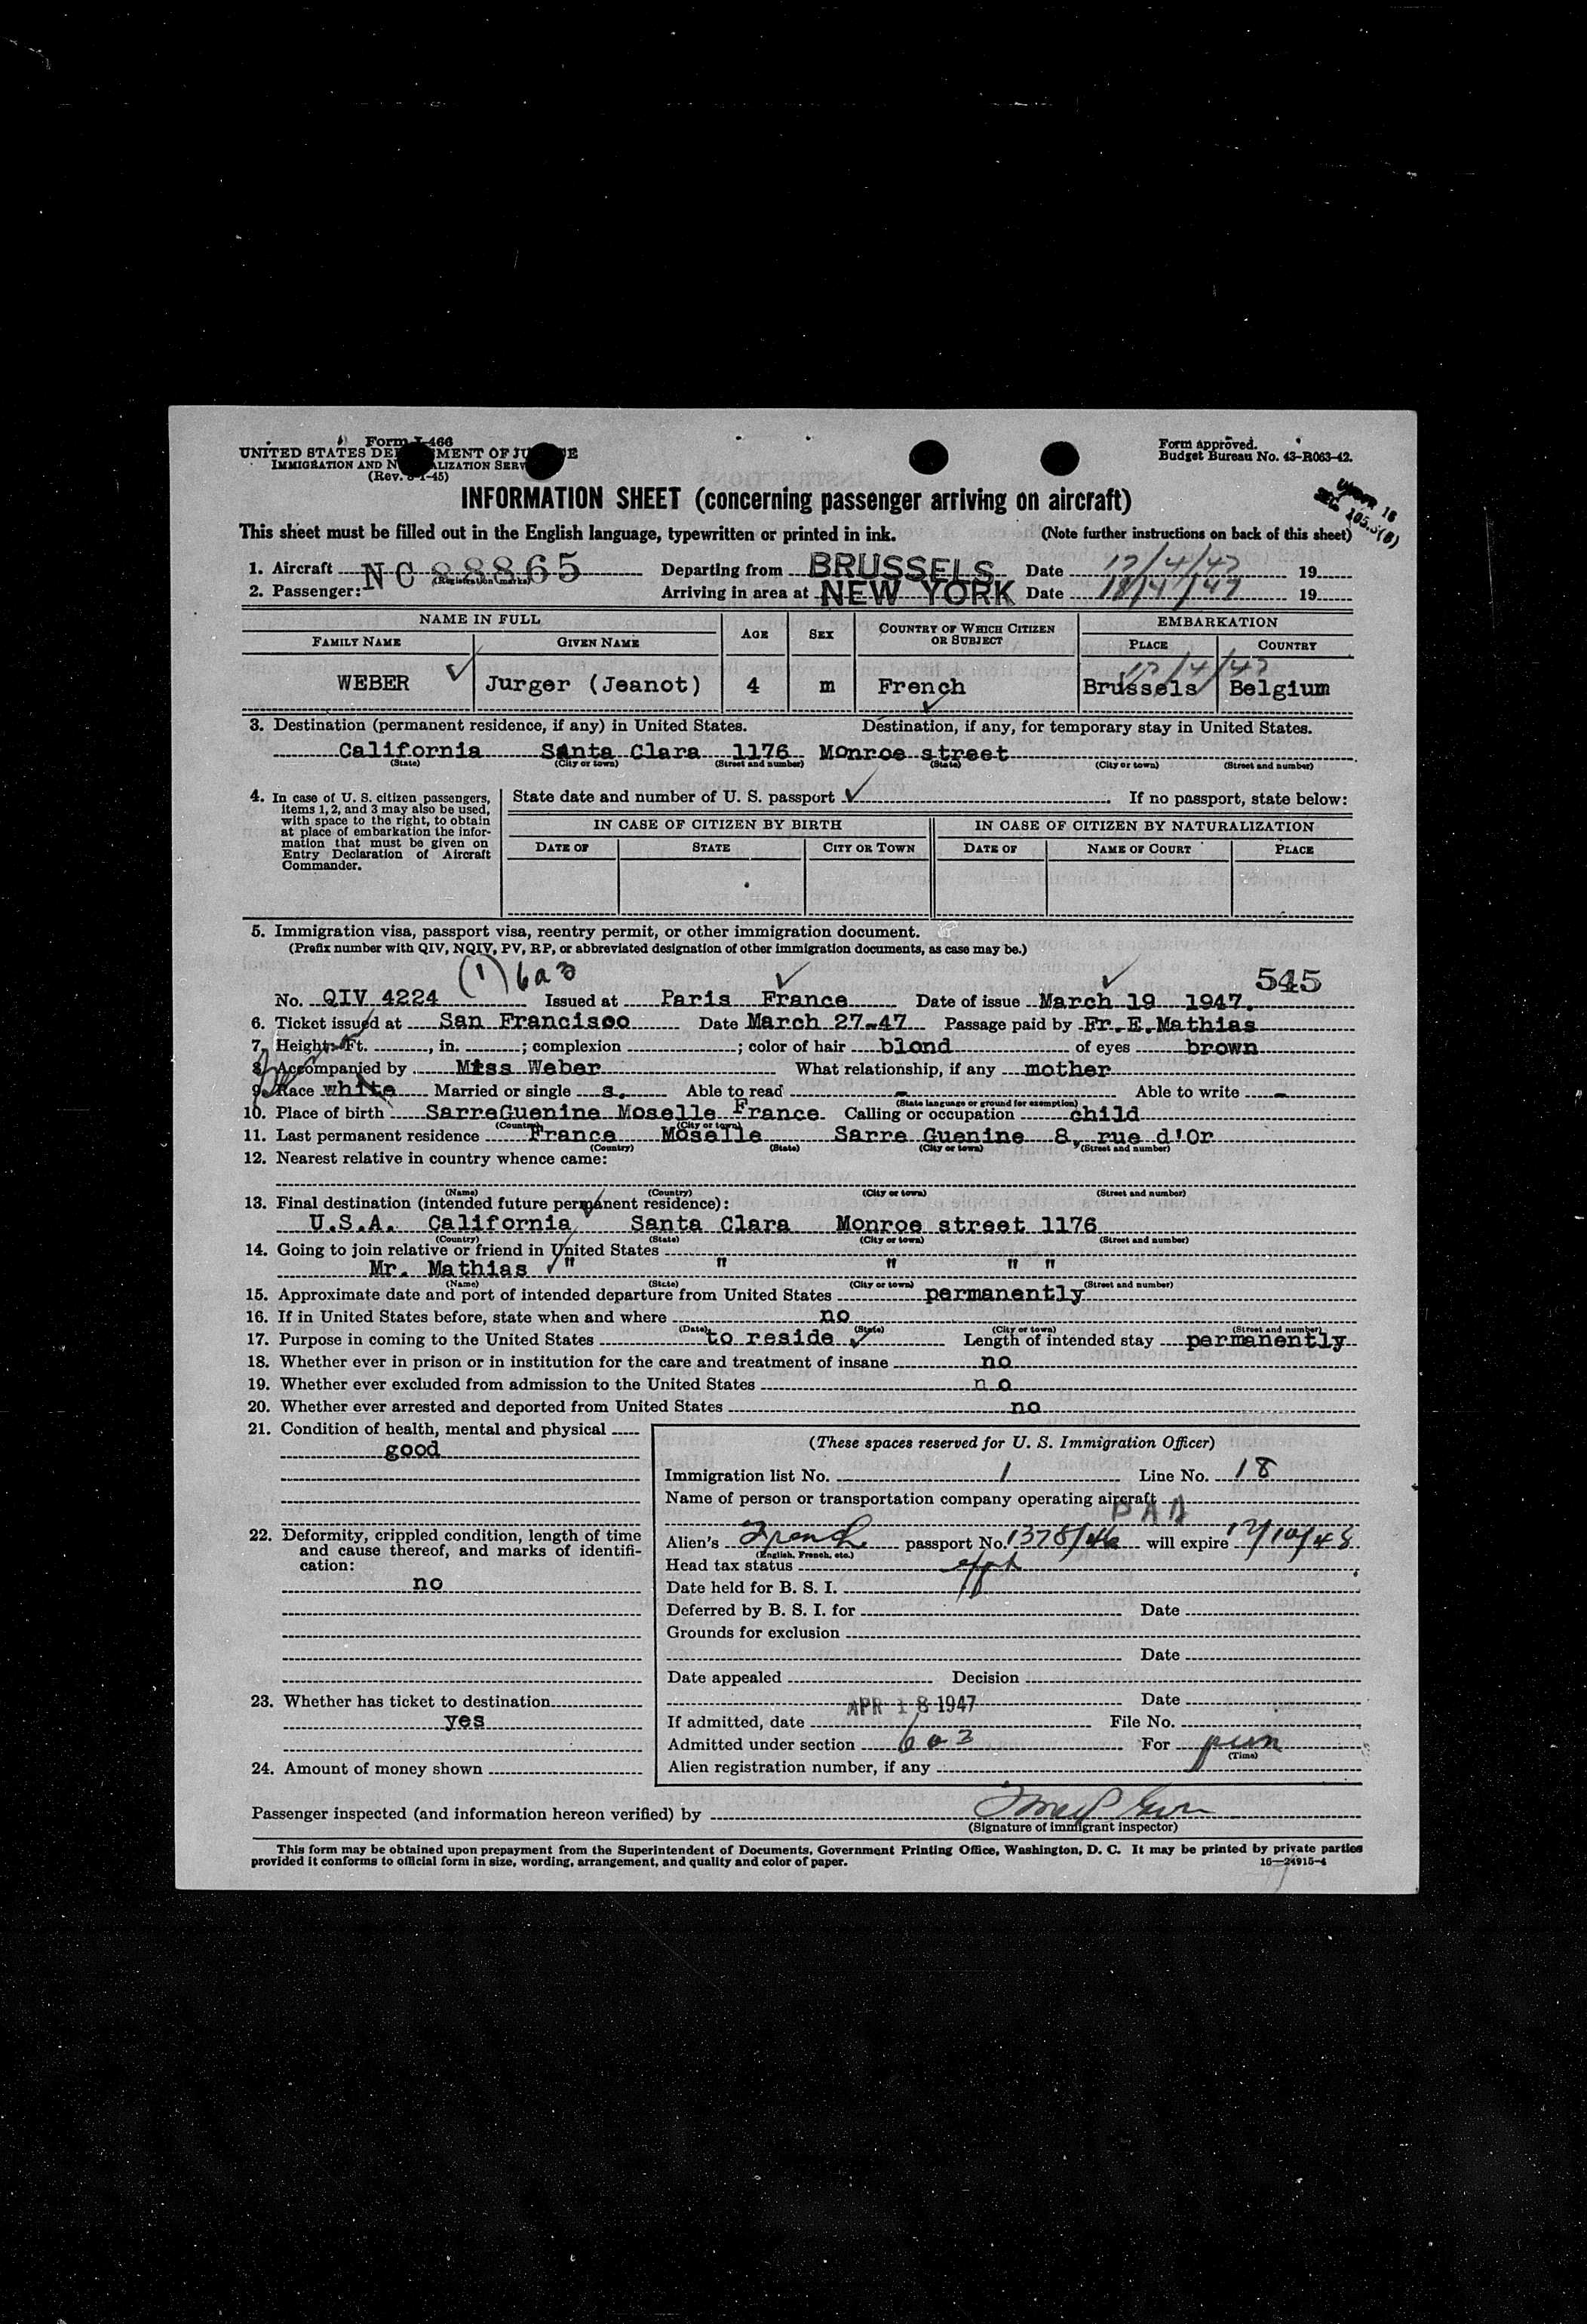 Form I-466
UNITED STATES DEPARTMENT OF JUSTICE
IMMIGRATION AND NATURALIZATION SERVICE
(Rev. 8-1-45)
Form approved.
Budget Bureau No. 43-R063-42.
INFORMATION SHEET (concerning passenger arriving on aircraft)
UNDER 16
SEC. 105.3(B)
This sheet must be filled out in the English language, typewritten or printed in ink. (Note further instructions on back of this sheet)
1. Aircraft NC 88865 Departing from BRUSSELS Date 17/4/47 19
(Registration marks)
2. Passenger: Arriving in area at NEW YORK Date 18/4/47 19
NAME IN FULL AGE SEX COUNTRY OF WHICH CITIZEN OR SUBJECT EMBARKATION
FAMILY NAME GIVEN NAME PLACE COUNTRY
17/4/47
WEBER Jurger (Jeanot) 4 m French Brussels Belgium
3. Destination (permanent residence, if any) in United States. Destination, if any, for temporary stay in United States.
California Santa Clara 1176 Monroe street
(State) (City or town) (Street and number) (State) (City or town) (Street and number)
4. In case of U. S. citizen passengers, items 1, 2, and 3 may also be used, with space to the right, to obtain at place of embarkation the information that must be given on Entry Declaration of Aircraft Commander.
State date and number of U. S. passport If no passport, state below:
IN CASE OF CITIZEN BY BIRTH IN CASE OF CITIZEN BY NATURALIZATION
DATE OF STATE CITY OR TOWN DATE OF NAME OF COURT PLACE
5. Immigration visa, passport visa, reentry permit, or other immigration document.
(Prefix number with QIV, NQIV, PV, RP, or abbreviated designation of other immigration documents, as case may be.)
(1) 6a3 545
No. QIV 4224 Issued at Paris France Date of issue March 19 1947.
6. Ticket issued at San Francisco Date March 27-47 Passage paid by Fr. E.Mathias
7. Height: Ft. , in. ; complexion ; color of hair blond of eyes brown
8. Accompanied by Miss Weber What relationship, if any mother
9. Race white Married or single s. Able to read - Able to write -
(State language or ground for exemption)
10. Place of birth SarreGuenine Moselle France Calling or occupation child
(Country) (City or town)
11. Last permanent residence France Moselle Sarre Guenine 8, rue d'Or
(Country) (State) (City or town) (Street and number)
12. Nearest relative in country whence came:
(Name) (Country) (City or town) (Street and number)
13. Final destination (intended future permanent residence):
U.S.A. California Santa Clara Monroe street 1176
(Country) (State) (City or town) (Street and number)
14. Going to join relative or friend in United States
Mr. Mathias " " " " "
(Name) (State) (City or town) (Street and number)
15. Approximate date and port of intended departure from United States permanently
16. If in United States before, state when and where no
(Date) (State) (City or town) (Street and number)
17. Purpose in coming to the United States to reside Length of intended stay permanently
18. Whether ever in prison or in institution for the care and treatment of insane no
19. Whether ever excluded from admission to the United States no
20. Whether ever arrested and deported from United States no
21. Condition of health, mental and physical
good
22. Deformity, crippled condition, length of time and cause thereof, and marks of identification:
no
23. Whether has ticket to destination
yes
24. Amount of money shown
(These spaces reserved for U. S. Immigration Officer)
Immigration list No. 1 Line No. 18
Name of person or transportation company operating aircraft
PAA
Alien's French passport No. 1378/46 will expire 12/10/48
(English, French, etc.)
Head tax status
Date held for B. S. I.
Deferred by B. S. I. for Date
Grounds for exclusion
Date
Date appealed Decision
APR 18 1947 Date
If admitted, date File No.
Admitted under section 6a3 For perm
(Time)
Alien registration number, if any
Passenger inspected (and information hereon verified) by
(Signature of immigrant inspector)
This form may be obtained upon prepayment from the Superintendent of Documents, Government Printing Office, Washington, D. C. It may be printed by private parties
provided it conforms to official form in size, wording, arrangement, and quality and color of paper. 16—24915-4